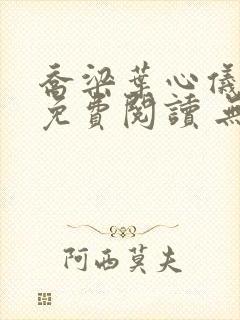 喬梁葉心儀
免費閱讀 無
阿西莫夫